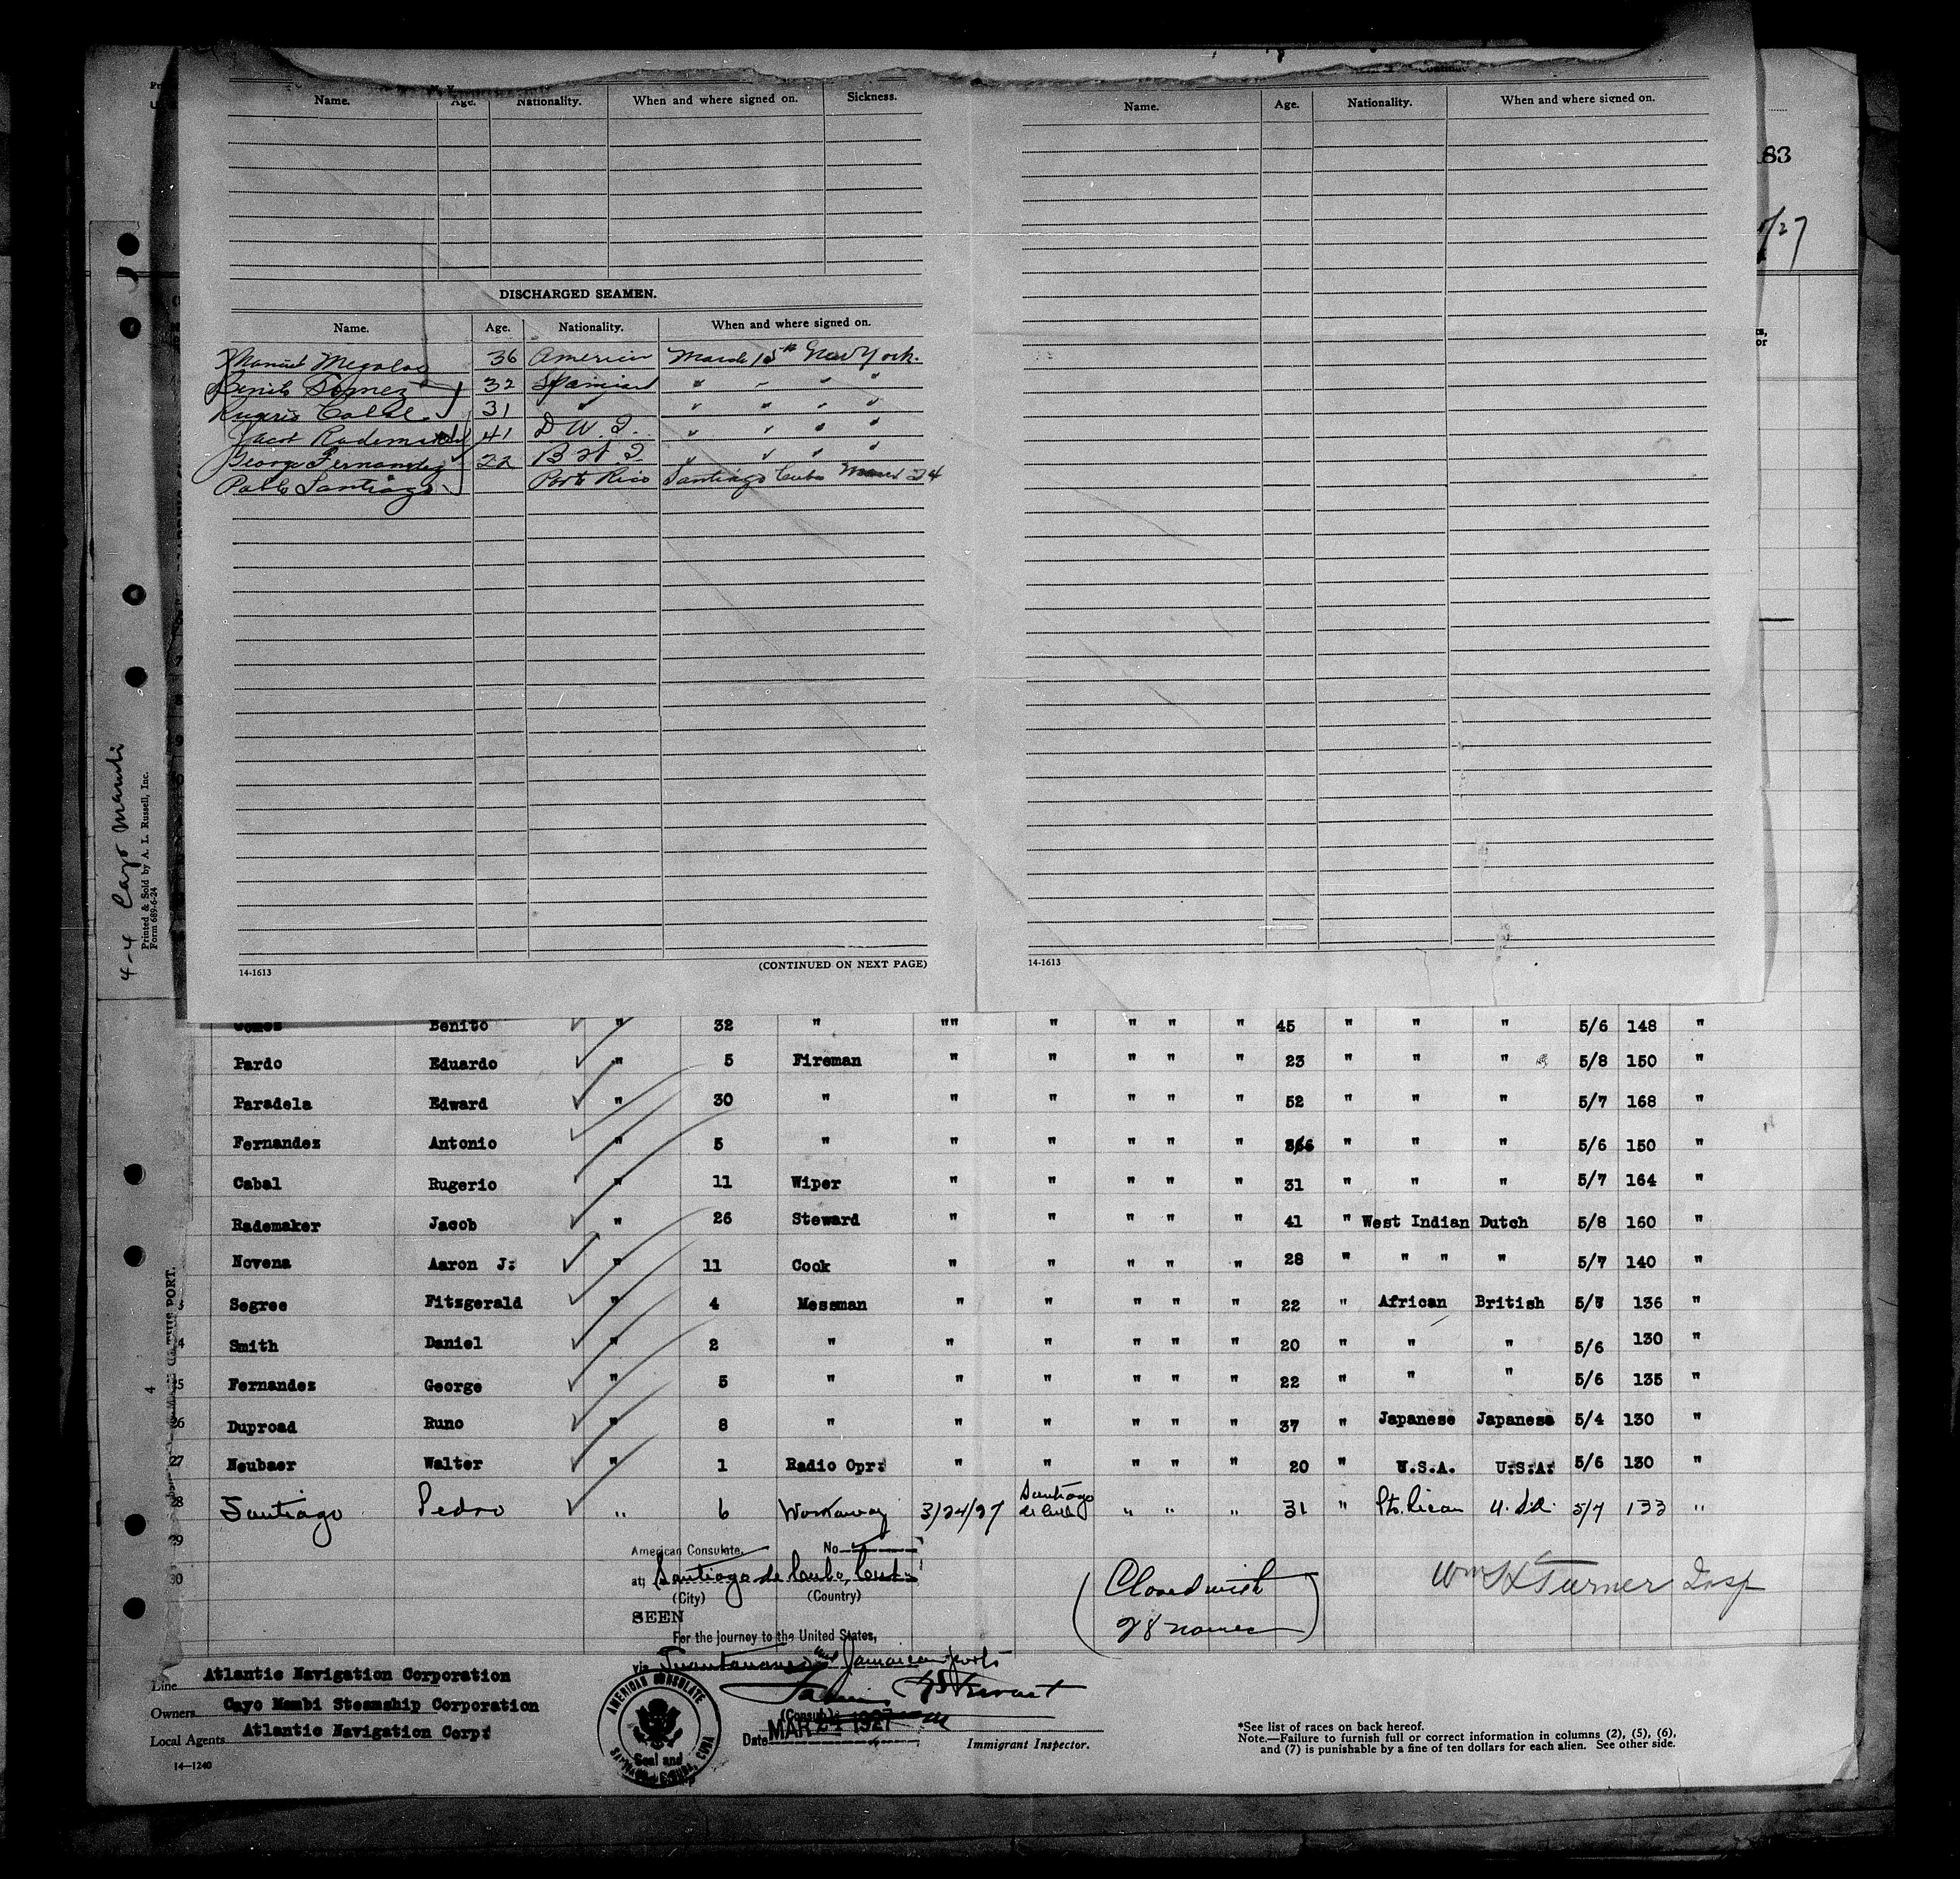 Name. Age. Nationality. When and where signed on. Sickness.
DISCHARGED SEAMEN.
Name. Age. Nationality. When and where signed on.
Manuel Megalos 36 American March 15th New York.
Benito Gomez 32 Spaniard " " " "
Rugerio Cabal 31 " " " " "
Jacob Rademaker 41 D W. I. " " " "
George Fernandez 22 B W I " " " "
Pablo Santiago Porto Rico Santiago Cuba March 24
14-1613 (CONTINUED ON NEXT PAGE)
Name. Age. Nationality. When and where signed on.
14-1613
83
/27
4-4 Cayo Mambi
Printed & Sold by A. L. Russell, Inc.
Form 689-6-24
Gomez Benito " 32 " "" " " " " 45 " " " 5/6 148 "
Pardo Eduardo " 5 Fireman " " " " " 23 " " " 5/8 150 "
Paradela Edward " 30 " " " " " " 52 " " " 5/7 168 "
Fernandez Antonio " 5 " " " " " " " " " 5/6 150 "
Cabal Rugerio " 11 Wiper " " " " " 31 " " " 5/7 164 "
Rademaker Jacob " 26 Steward " " " " " 41 " West Indian Dutch 5/8 160 "
Novena Aaron J: " 11 Cook " " " " " 28 " " " " 5/7 140 "
3 Segree Fitzgerald " 4 Messman " " " " " 22 " African British 5/ 136 "
4 Smith Daniel " 2 " " " " " " 20 " " " 5/6 130 "
25 Fernandez George " 5 " " " " " " 22 " " " 5/6 135 "
26 Duproad Runo " 8 " " " " " " 37 " Japanese Japanese 5/4 130 "
27 Neubaer Walter " 1 Radio Opr: " " " " " 20 " U.S.A. U:S:A: 5/6 130 "
28 Santiago Pedro " 6 Workaway 3/24/27 Santiago de Cuba " " " 31 " Pto. Rican U.S.A. 5/7 133 "
29
30
American Consulate, No
at; Santiago de Cuba, Cuba
(City) (Country)
SEEN
For the journey to the United States,
via Guantanamo and Jamaican ports
(Consul)
Date MAR 24 1927
AMERICAN CONSULATE
SANTIAGO DE CUBA, CUBA
(Closed with
28 names)
Wm H Turner Insp
Immigrant Inspector.
Line Atlantic Navigation Corporation
Owners Cayo Mambi Steamship Corporation
Local Agents Atlantic Navigation Corp:
14—1240
*See list of races on back hereof.
Note.—Failure to furnish full or correct information in columns (2), (5), (6),
and (7) is punishable by a fine of ten dollars for each alien. See other side.